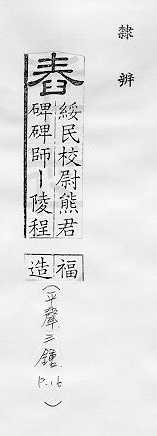 隸辨
舂
綏民校尉熊君
碑碑師丨陵程
福
造
(平聲三鍾 P.16)